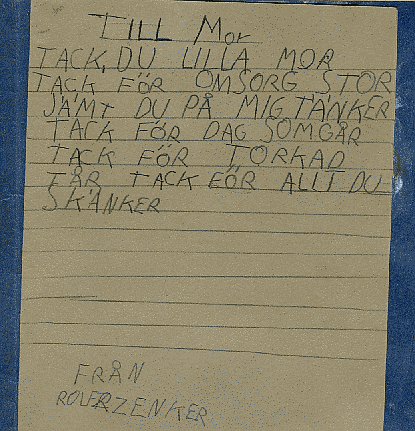 TILL Mor
TACK, DU LILLA MOR
TACK FÖR OMSORG STOR
SÄMT DU PÅ MIG TÄNKER
TACK FÖR DAG SOMGÅR
TACK FÖR TORKAD
TÅR TACK FÖR ALLT DU
SKÄNKER
FRÅN
ROLF ZENKER